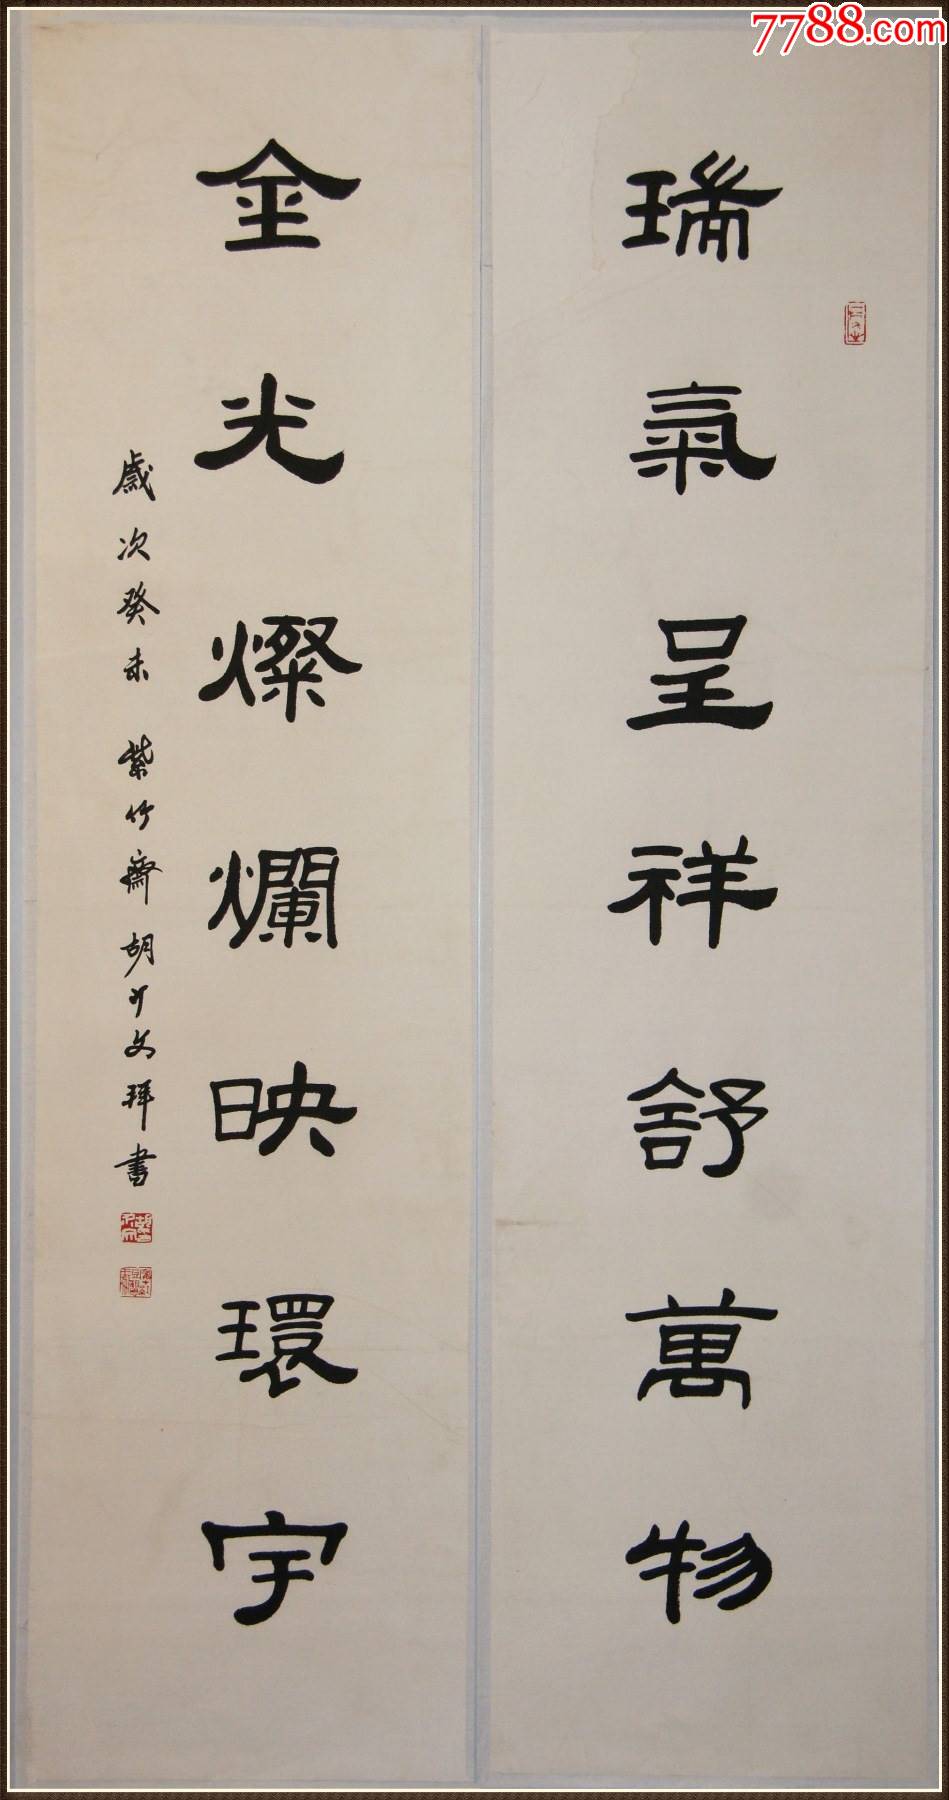 7788.com
瑞氣呈祥舒萬物
金光燦爛映環宇
歲次癸未 紫竹齋胡才文拜書